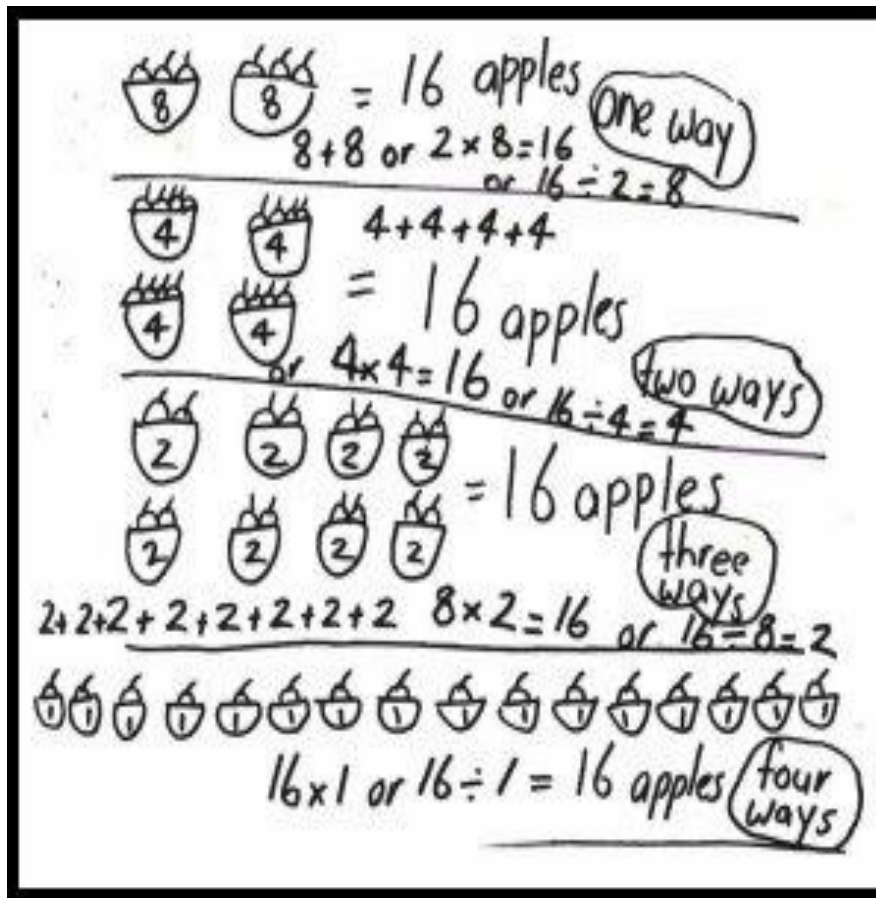 8 8 = 16 apples
one way
8+8 or 2×8=16
or 16÷2=8
4 4 4+4+4+4
4 4 = 16 apples
or 4×4=16 or 16÷4=4
two ways
2 2 2 2 = 16 apples
2 2 2 2
three
ways
2+2+2+2+2+2+2+2 8×2=16 or 16÷8=2
1 1 1 1 1 1 1 1 1 1 1 1 1 1 1 1
16×1 or 16÷1 = 16 apples
four
ways